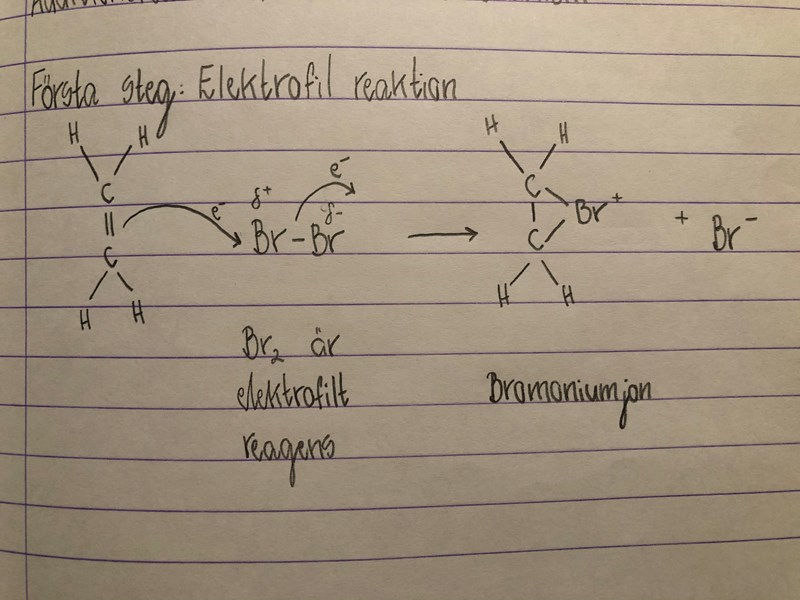 Första steg: Elektrofil reaktion
H H H H
e⁻
C δ⁺ C
e⁻ δ⁻ Br⁺
|| Br-Br → + Br⁻
C C
H H H H
Br₂ är
elektrofilt Bromoniumjon
reagens